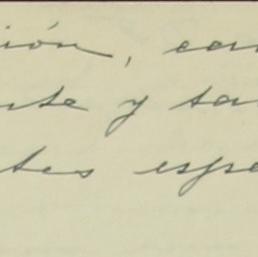 ión, con
nte y ta
tes espe